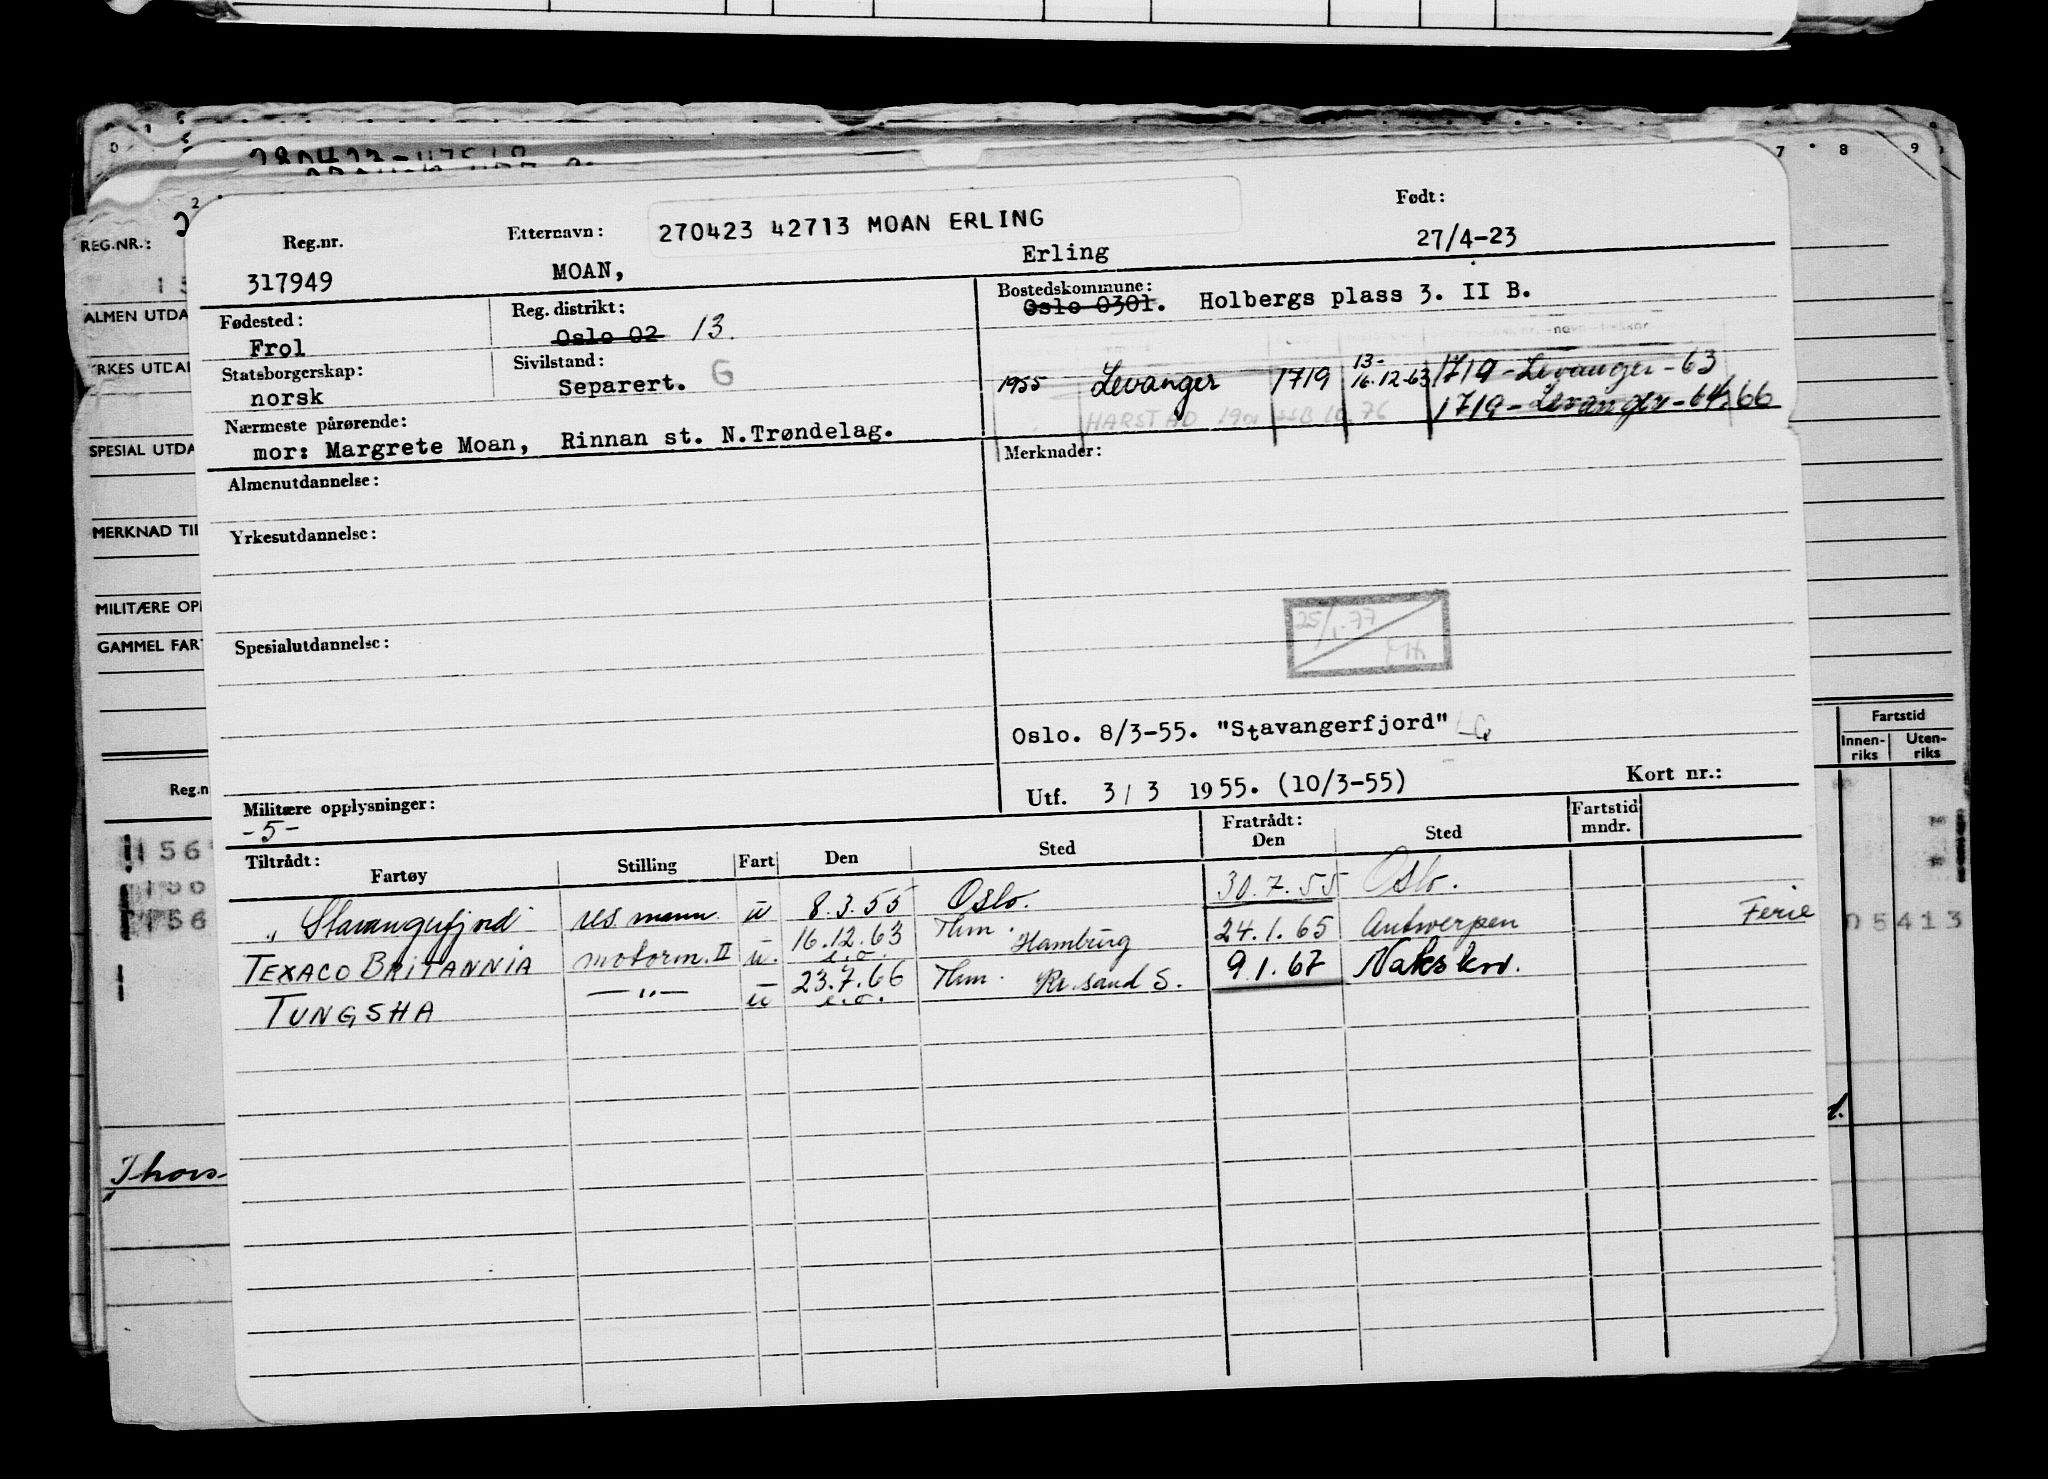 280423-47562
7 8 9
REG.NR.:
ALMEN UTDA
YRKES UTDA
SPESIAL UTDA
MERKNAD TIL
MILITÆRE OPP
GAMMEL FART
Reg.n
Reg.nr. Etternavn: 270423 42713 MOAN ERLING Født:
317949 MOAN, Erling 27/4-23
Fødested: Reg. distrikt: Bostedskommune:
Frol Oslo 02 13. Oslo 0301. Holbergs plass 3. II B.
Statsborgerskap: Sivilstand:
norsk Separert. G
1955 Levanger 1719 13-16.12-63 1719-Levanger-63
HARSTAD 1901 10.76 1719-Levanger-64,66
Nærmeste pårørende:
mor: Margrete Moan, Rinnan st. N.Trøndelag.
Almenutdannelse: Merknader:
Yrkesutdannelse:
25/1.77
Spesialutdannelse:
Oslo. 8/3-55. "Stavangerfjord"
Utf. 3/3 1955. (10/3-55) Kort nr.:
Militære opplysninger:
-5-
Tiltrådt: Fratrådt: Fartstid mndr.
Fartøy Stilling Fart Den Sted Den Sted
„ Stavangerfjord" res mann. u 8.3.55 Oslo. 30.7.55 Oslo.
TEXACO BRITANNIA motorm. II u. 16.12.63 e.o. Hamburg 24.1.65 Antwerpen Ferie
TUNGSHA —"— u 23.7.66 e.o. Kr.sand S. 9.1.67 Nakskov.
Fartstid
Innen-riks Uten-riks
05413
Thors